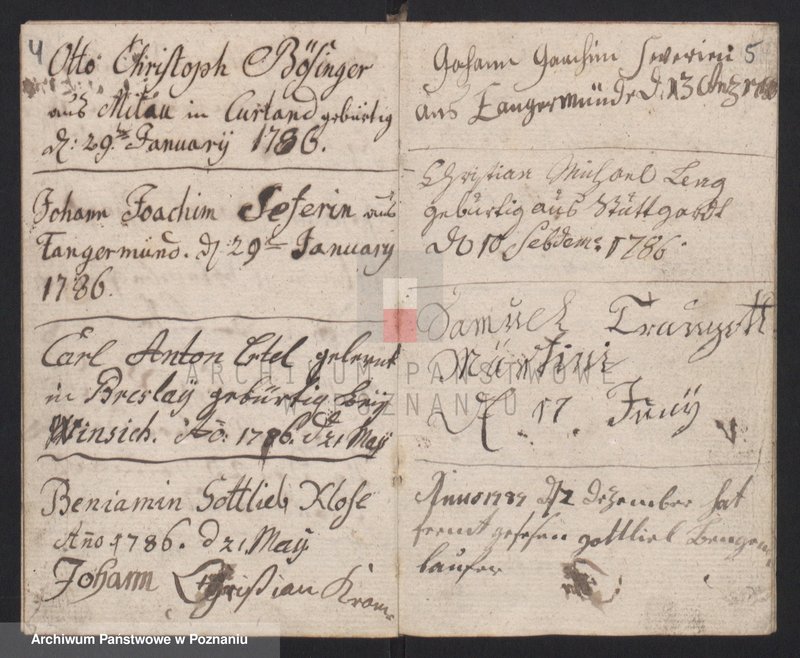 4
Otto Christoph Bösinger
aus Mitau in Curland gebürtig
d: 29te January 1786.
Johann Joachim Seferin aus
Tangermünd. d: 29te January
1786.
Carl Anton Ertel gelernt
in Breslaÿ gebürtig beÿ
Winsich. Año: 1786. d 21 Maÿ
Beniamin Gottlieb Klose
Año 1786. d 21 Maÿ
Johann Christian Krom
5
Johann Joachim Severien
aus Tangermünde d. 13
Christian Michael Leng
gebürtig aus Stuttgardt
d 10 Sebdem: 1786.
Samuel Traugott
Martini
d. 17 Junÿ
Anno 1787 d 2 dezember hat
fremt gesesen gottlieb
laufer
ARCHIWUM PAŃSTWOWE
W POZNANIU
Archiwum Państwowe w Poznaniu